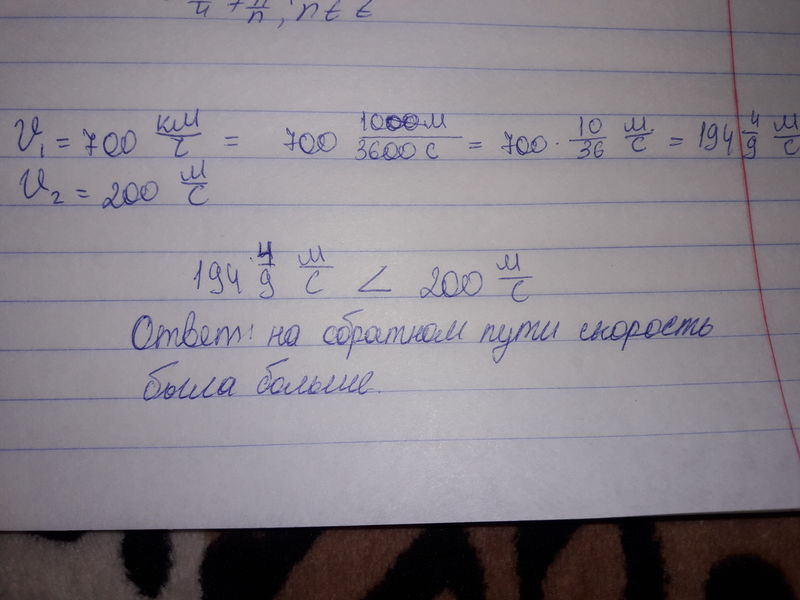 V₁ = 700 км/ч = 700 1000м/3600 с = 700 · 10/36 м/с = 194 4/9 м/с
V₂ = 200 м/с
194 4/9 м/с < 200 м/с
Ответ: на обратном пути скорость
была больше.